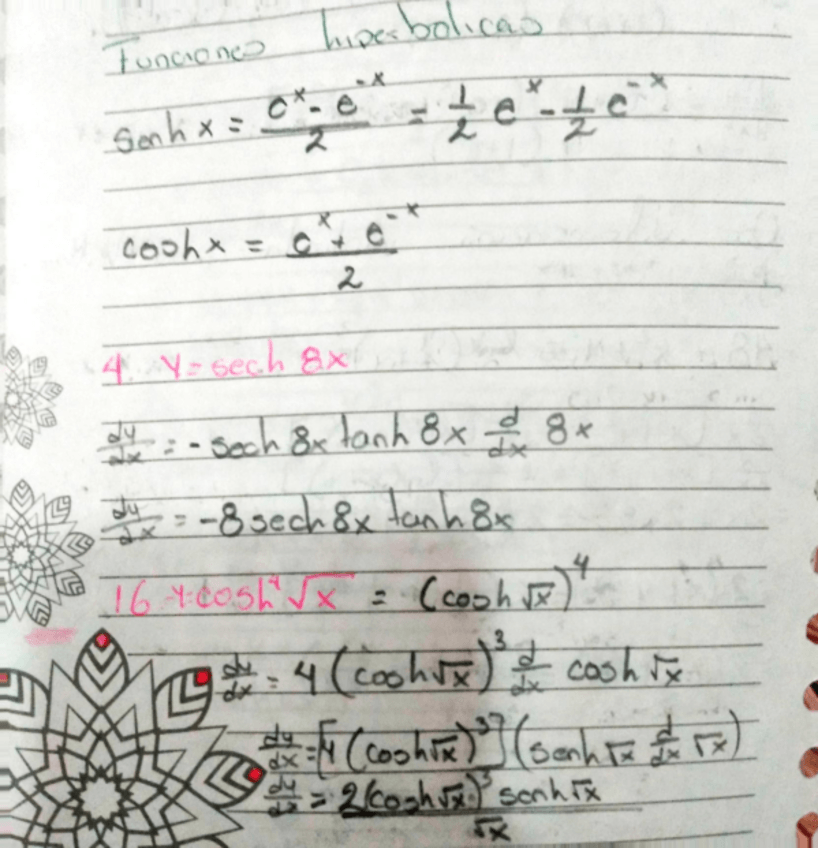 Funciones hiperbolicas
senh x = (e^x - e^-x)/2 = 1/2 e^x - 1/2 e^-x
cosh x = (e^x + e^-x)/2
4. y = sech 8x
dy/dx = - sech 8x tanh 8x d/dx 8x
dy/dx = -8 sech 8x tanh 8x
16 y = cosh^4 √x = (cosh √x)^4
dy/dx = 4 (cosh √x)^3 d/dx cosh √x
dy/dx = [4 (cosh √x)^3] (senh √x d/dx √x)
dy/dx = 2(cosh √x)^3 senh √x / √x